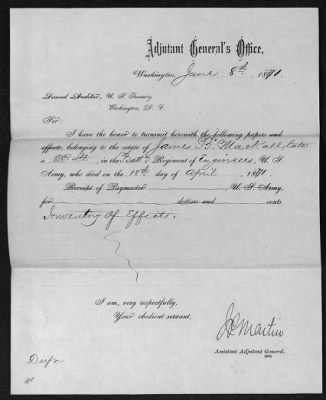 Adjutant General's Office,
Washington, June 8th, 1871.
Second Auditor, U. S. Treasury,
Washington, D. C.
Sir:
I have the honor to transmit herewith the following papers and
effects, belonging to the estate of James B. Mackall, late
a 2d Lt., in the Batt'n Regiment of Engineers, U. S.
Army, who died on the 18th day of April, 1871.
Receipt of Paymaster U. S. Army,
for dollars and cents.
Inventory of Effects.
I am, very respectfully,
Your obedient servant,
Martin
Assistant Adjutant General.
Dupe